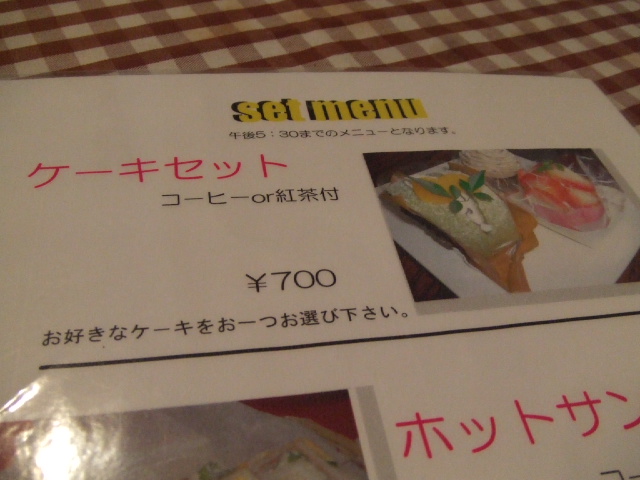 set menu
午後5：30までのメニューとなります。
ケーキセット
コーヒーor紅茶付
￥700
お好きなケーキをお一つお選び下さい。
ホットサン
コー